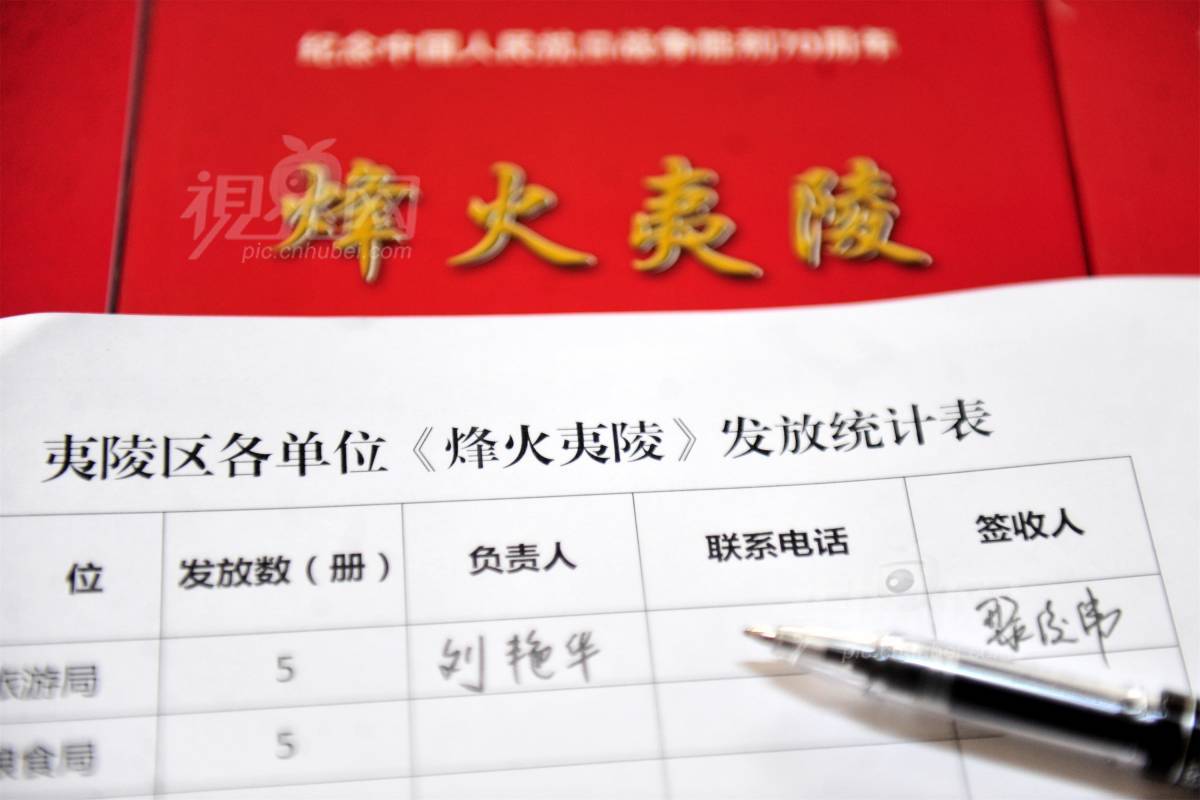 纪念中国人民抗日战争胜利70周年
烽火夷陵
視界网
pic.cnhubei.com
夷陵区各单位《烽火夷陵》发放统计表
位 发放数（册） 负责人 联系电话 签收人
旅游局 5 刘艳华
粮食局 5